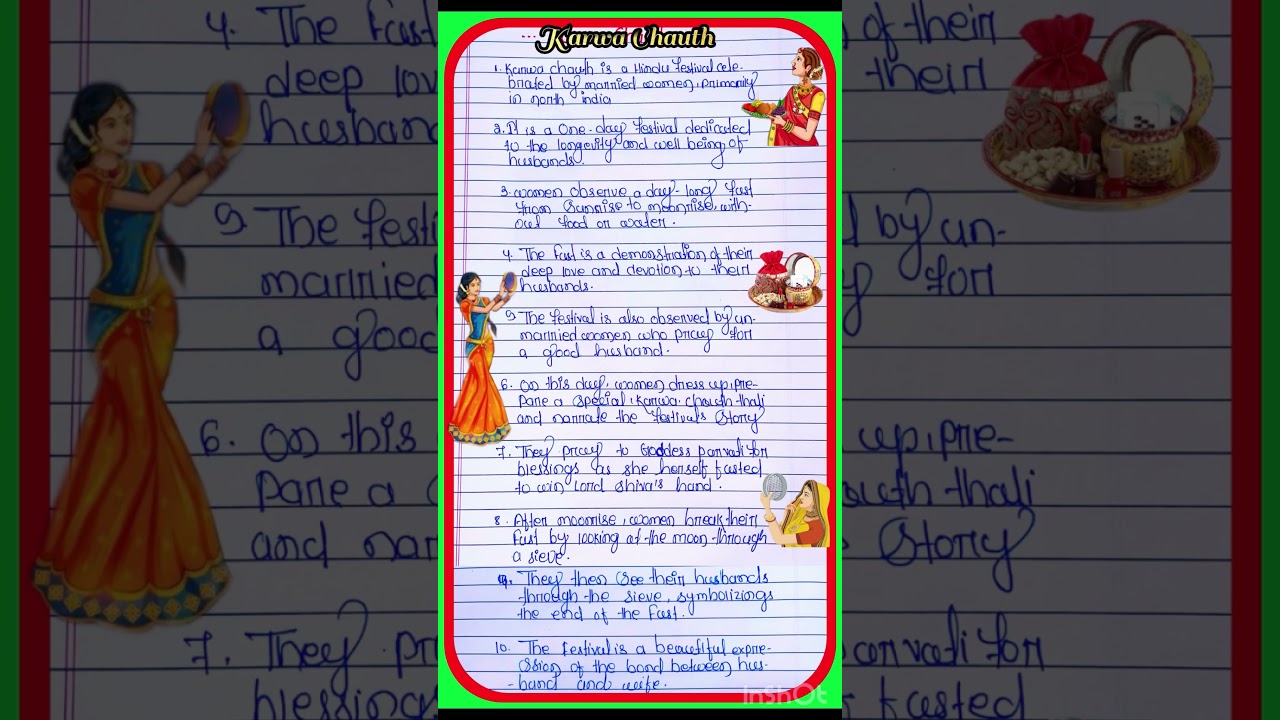 Karwa Chauth
1. Karwa chauth is a Hindu festival cele-
brated by married women, primarily
in north india
2. It is a One-day festival dedicated
to the longevity and well being of
husbands.
3. women observe a day-long fast
from Sunrise to moonrise, with-
out food or water.
4. The fast is a demonstration of their
deep love and devotion to their
husbands.
5 The festival is also observed by un-
married women who pray for
a good husband.
6. On this day, women dress up, pre-
pare a special, Karwa chauth thali
and narrate the festival's Story
7. They pray to Goddess parvati for
blessings as she herself fasted
to win Lord Shiva's hand.
8. After moonrise, women break their
fast by looking at the moon through
a sieve.
9. They then See their husbands
through the sieve, symbolizings
the end of the fast.
10. The festival is a beautiful expre-
ssion of the bond between hus-
-band and wife.
InShOt
4. The fast
deep lov
husband
5 The festi
married
a good
6. On this
pare a
and nar
7. They pr
blessings
of their
their
d by un-
for
up, pre-
auth thali
Story
parvati for
fasted